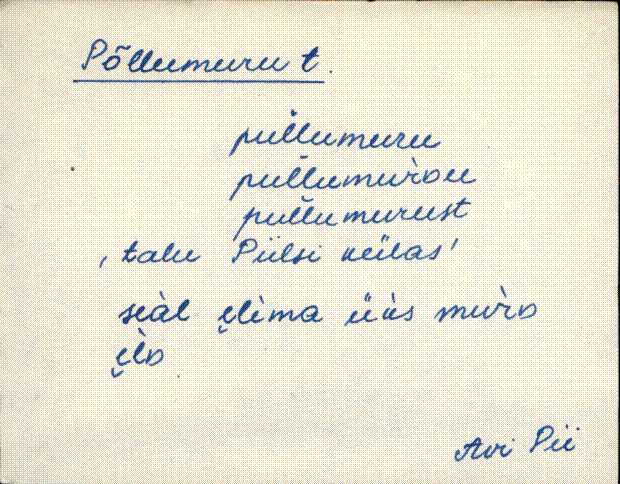 Põllumuru t.
pui̮llumuru
pui̮llumùrou
pui̮llumurust
‚talu Piilsi külas’
seàl ȩlìma üüs mùro
ȩlo
Avi Pii